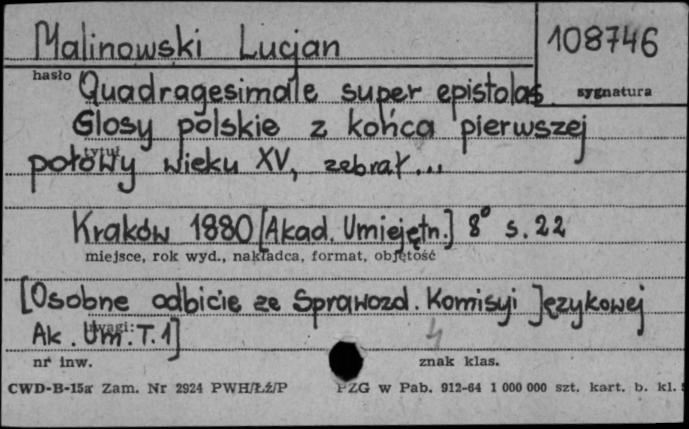 Malinowski Lucjan
108746
hasło
sygnatura
Quadragesimale super epistolas
Glosy polskie z końca pierwszej
tytuł
połowy wieku XV, zebrał...
Kraków 1880 [Akad. Umiejętn.] 8° s. 22
miejsce, rok wyd., nakładca, format, objętość
[Osobne odbicie ze Sprawozd. Komisyi Językowej
uwagi:
Ak. Um. T. 1]
4
nr inw.
znak klas.
CWD-B-15a Zam. Nr 2924 PWH/Łź/P
PZG w Pab. 912-64 1 000 000 szt. kart. b. kl.